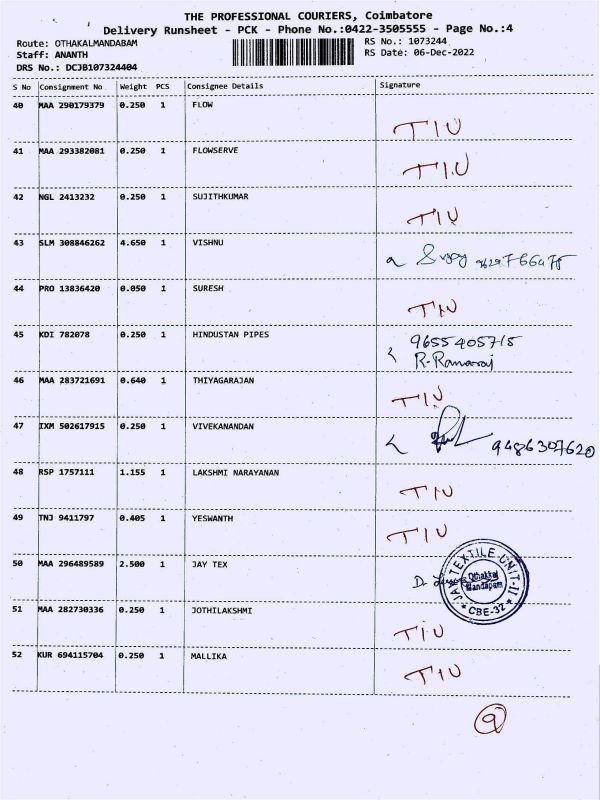 THE PROFESSIONAL COURIERS, Coimbatore
Delivery Runsheet - PCK - Phone No.:0422-3505555 - Page No.:4
Route: OTHAKALMANDABAM RS No.: 1073244
Staff: ANANTH RS Date: 06-Dec-2022
DRS No.: DCJB107324404
S No Consignment No Weight PCS Consignee Details Signature
40 MAA 290179379 0.250 1 FLOW TIU
41 MAA 293382081 0.250 1 FLOWSERVE TIU
42 NGL 2413232 0.250 1 SUJITHKUMAR TIU
43 SLM 308846262 4.650 1 VISHNU
44 PRO 13836420 0.050 1 SURESH TIU
45 KDI 782078 0.250 1 HINDUSTAN PIPES 9655405715
R-Ramaraj
46 MAA 283721691 0.640 1 THIYAGARAJAN TIU
47 IXM 502617915 0.250 1 VIVEKANANDAN 9486307620
48 RSP 1757111 1.155 1 LAKSHMI NARAYANAN TIU
49 TNJ 9411797 0.405 1 YESWANTH TIU
50 MAA 296489589 2.500 1 JAY TEX D.
JAY TEXTILE UNIT-II
Othakkal
Mandapam
* CBE-32 *
51 MAA 282730336 0.250 1 JOTHILAKSHMI TIU
52 KUR 694115704 0.250 1 MALLIKA TIU